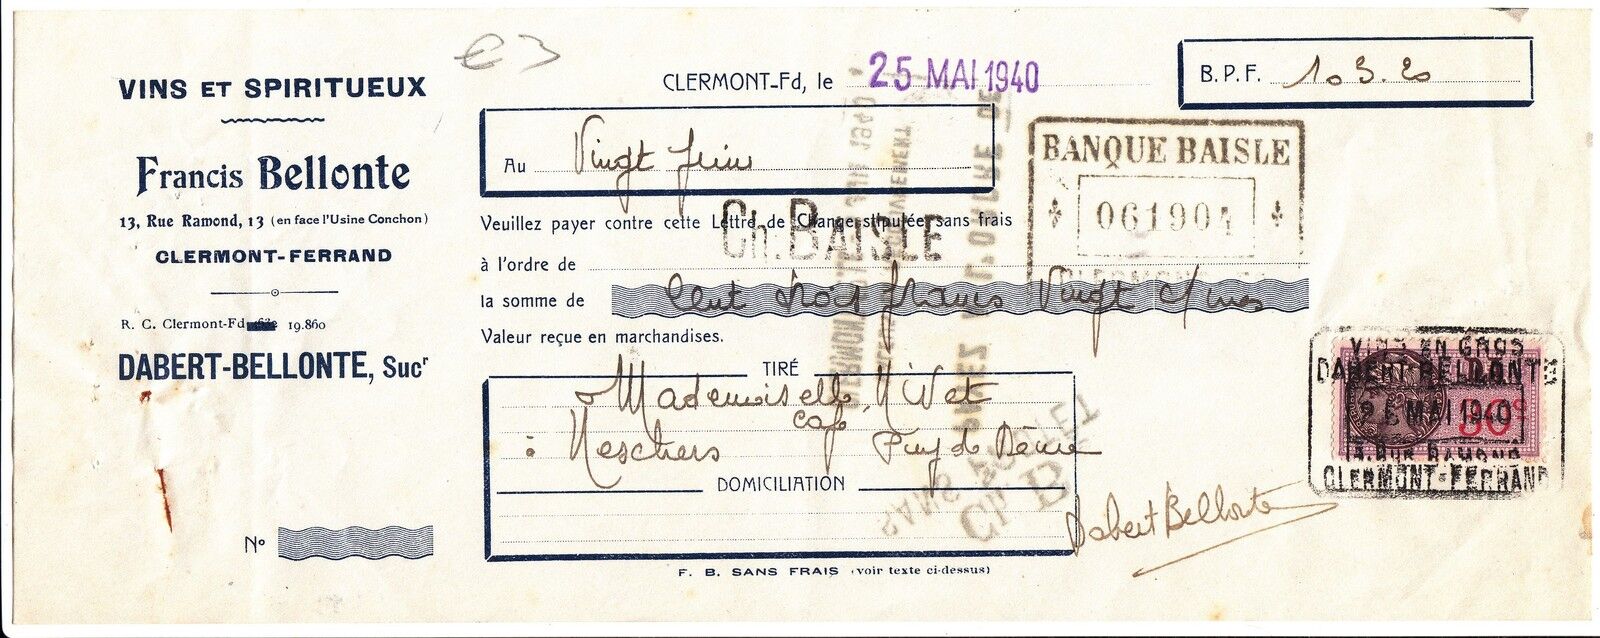 VINS ET SPIRITUEUX
Francis Bellonte
13, Rue Ramond, 13 (en face l'Usine Conchon)
CLERMONT-FERRAND
R. C. Clermont-Fd 19.860
DABERT-BELLONTE, Sucr
No
€3
CLERMONT-Fd, le 25 MAI 1940
B. P. F. 103.20
Au Vingt juin
BANQUE BAISLE
061904
CLERMONT
Veuillez payer contre cette Lettre de Change stipulée sans frais
Ch. BAISLE
à l'ordre de
la somme de Cent trois francs Vingt c/mes
Valeur reçue en marchandises.
TIRÉ
Mademoiselle Nivet
café
à Neschers Puy de Dôme
DOMICILIATION
SANS
Ch B
Dabert Bellonte
F. B. SANS FRAIS (voir texte ci-dessus)
VINS EN GROS
DABERT-BELLONTE
MAI 1940
90
13, RUE RAMOND
CLERMONT-FERRAND